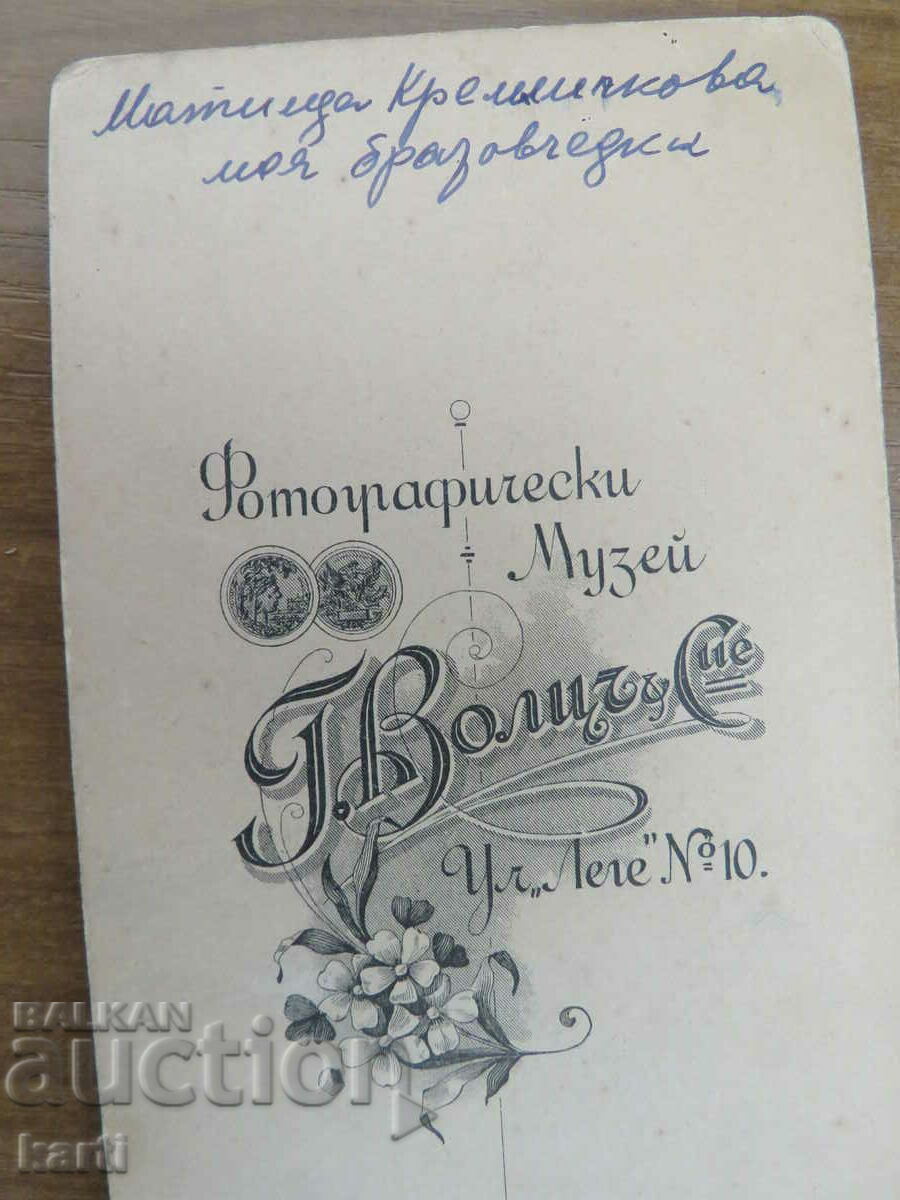 Матилда Кремичкова,
моя бразовчедка
Фотографически
Музей
Г. Волицъ Сие
Ул. „Леге" № 10.
BALKAN
auction
karti